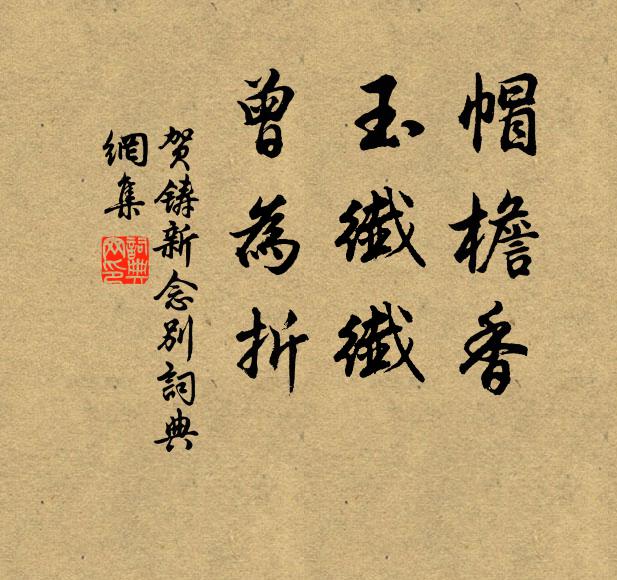 帽檐香
玉纖纖
曾為折
贺铸新念别詞典
網集
詞典
网印